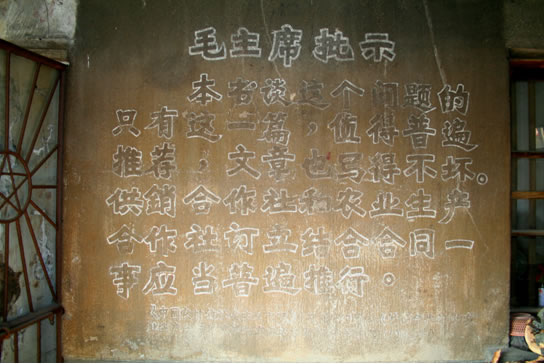 毛主席批示
本书谈这个问题的
只有这一篇，值得普遍
推荐，文章也写得不坏。
供銷合作社和农业生产
合作社订立结合合同一
事应当普遍推行。